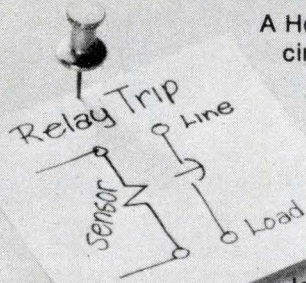 A He
cir
Relay Trip
Line
Sensor
Load